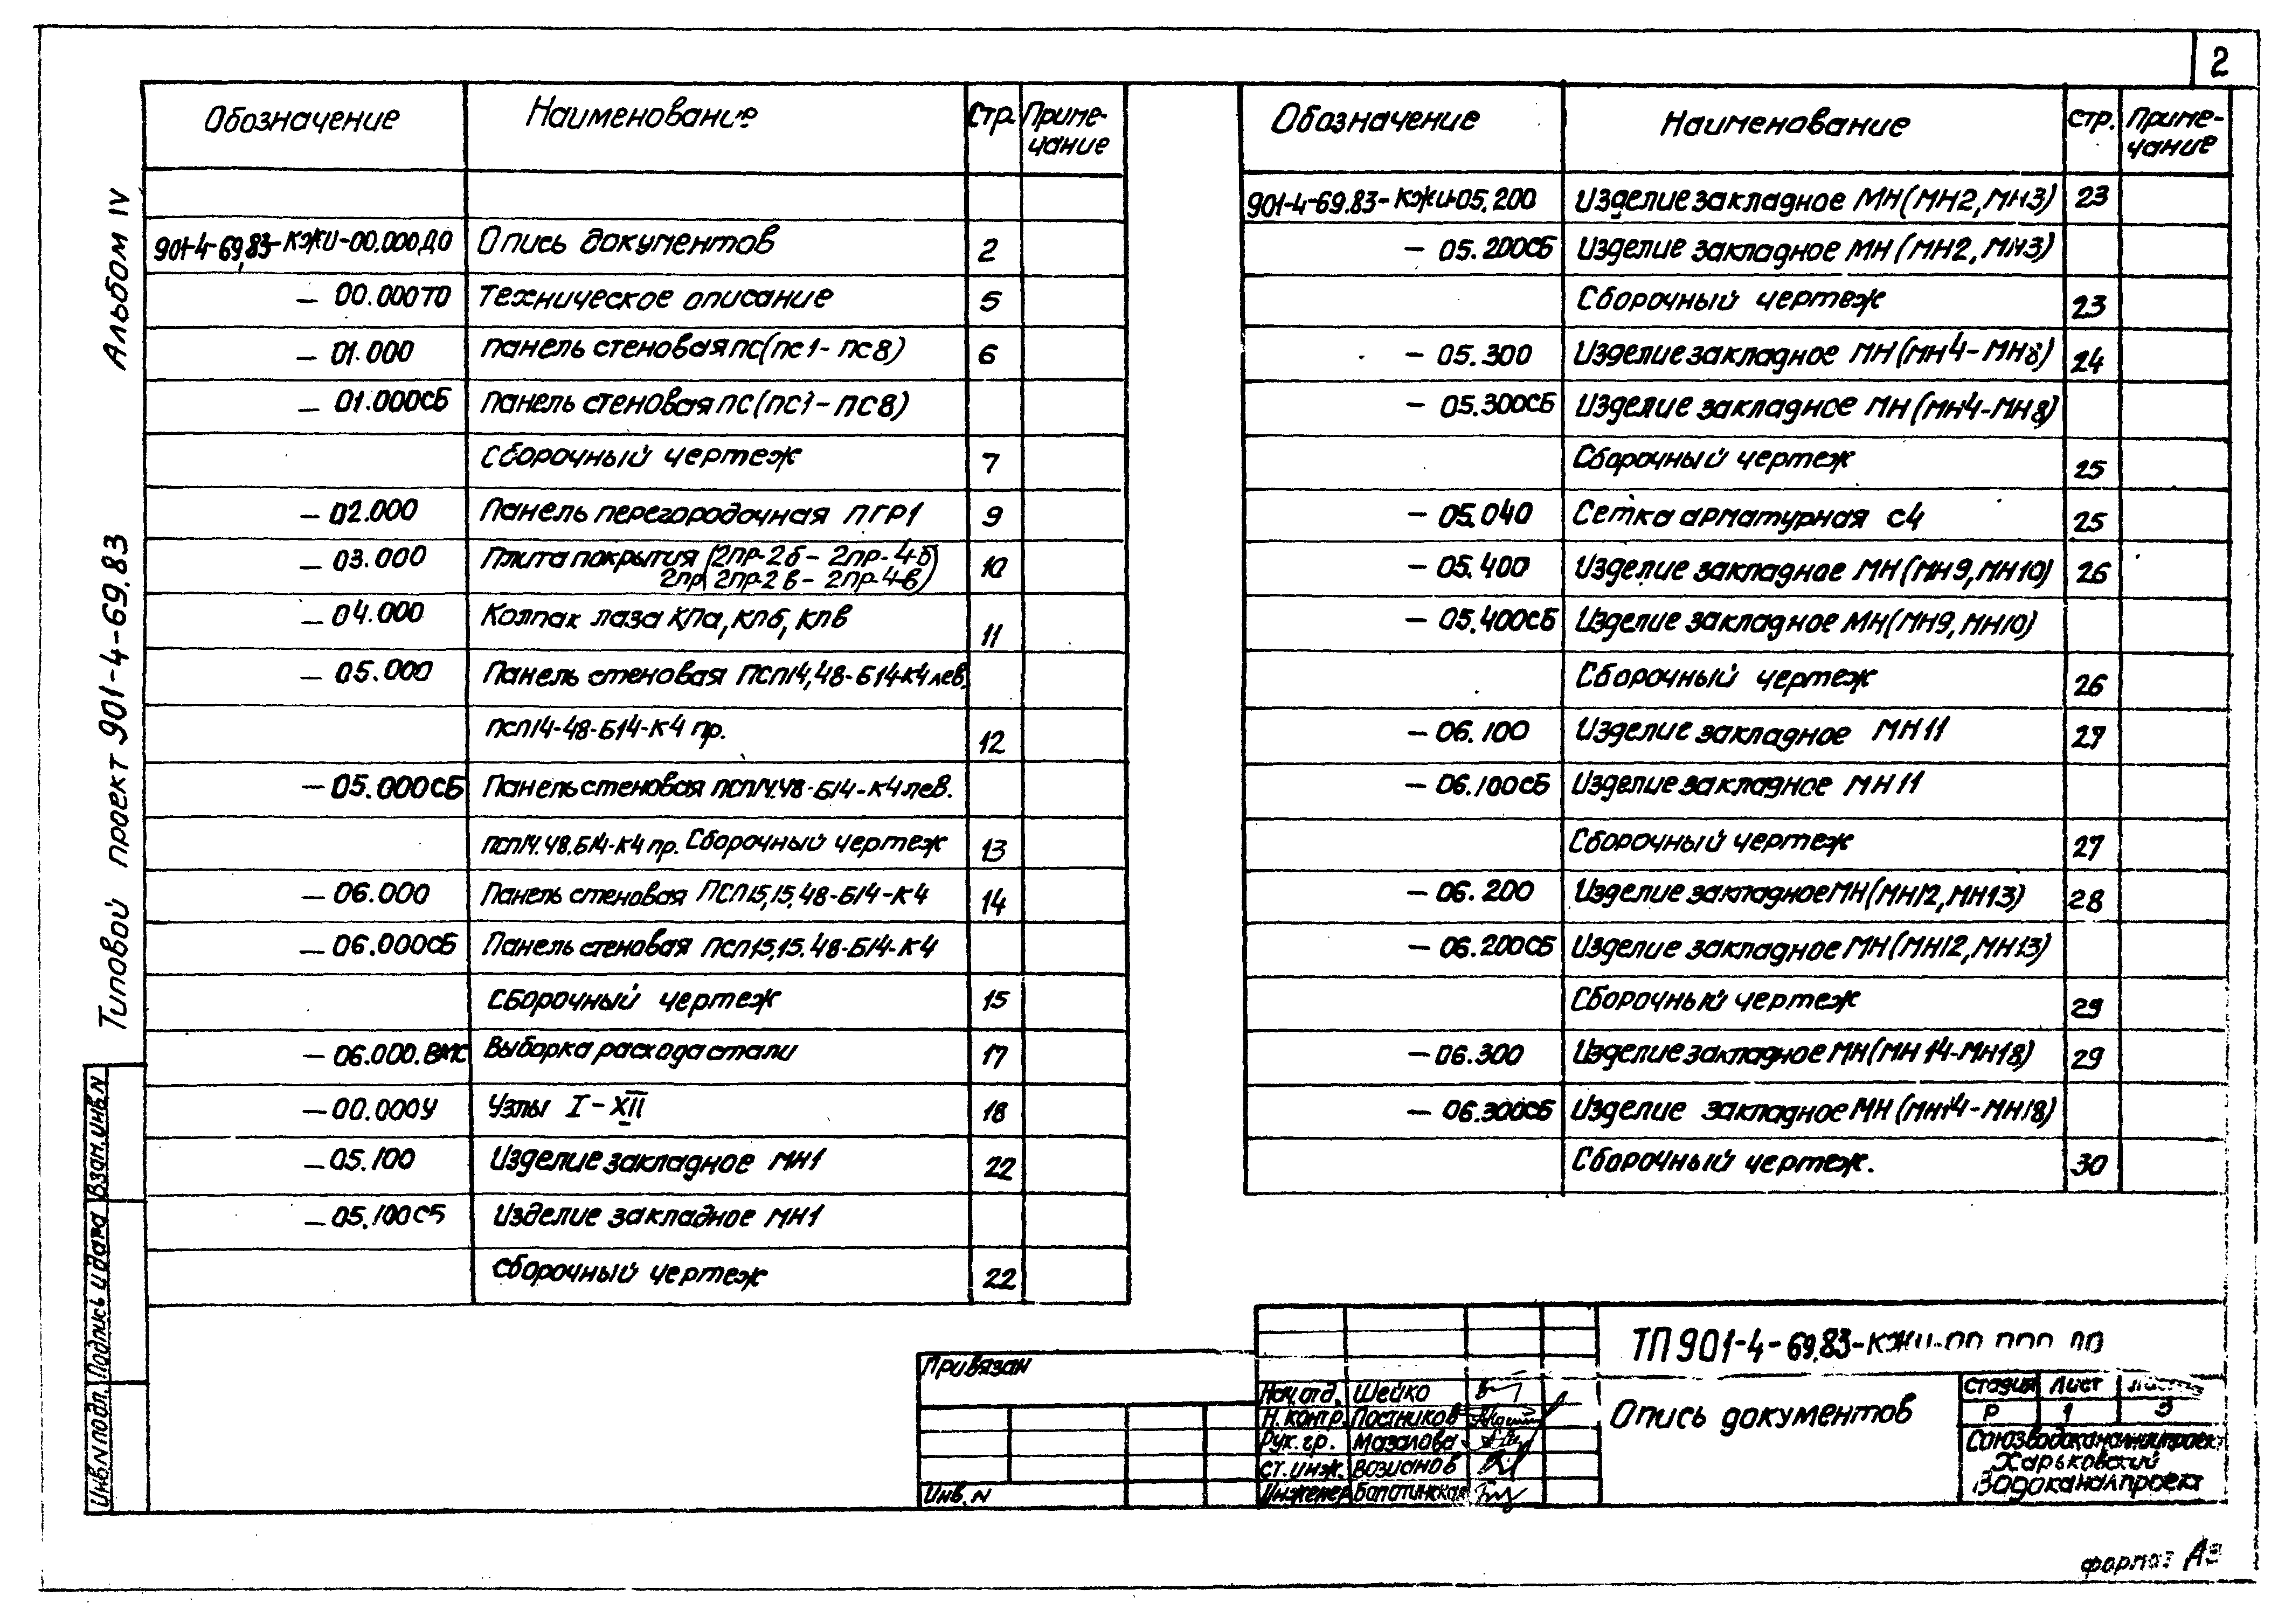 2
Альбом IV
Типовой проект 901-4-69.83
Взам.инв.N
Подпись и дата
Инв.N подл.
Обозначение Наименование Стр. Приме-
чание
901-4-69.83-КЖИ-00.000ДО Опись документов 2
- 00.000ТО Техническое описание 5
- 01.000 Панель стеновая ПС(ПС1-ПС8) 6
- 01.000СБ Панель стеновая ПС(ПС1-ПС8)
Сборочный чертеж 7
- 02.000 Панель перегородочная ПГР1 9
- 03.000 Плита покрытия (2ПР-2б - 2ПР-4б
2ПР 2ПР-2в - 2ПР-4в) 10
- 04.000 Колпак лаза КПа, КПб, КПв 11
- 05.000 Панель стеновая ПСП14,48-Б14-К4 лев.
ПСП14-48-Б14-К4 пр. 12
- 05.000СБ Панель стеновая ПСП14.48-Б14-К4 лев.
ПСП14.48.Б14-К4 пр. Сборочный чертеж 13
- 06.000 Панель стеновая ПСП15,15,48-Б14-К4 14
- 06.000СБ Панель стеновая ПСП15,15.48-Б14-К4
Сборочный чертеж 15
- 06.000.ВМС Выборка расхода стали 17
- 00.000У Узлы I-XII 18
- 05.100 Изделие закладное МН1 22
- 05.100СБ Изделие закладное МН1
Сборочный чертеж 22
Обозначение Наименование Стр. Приме-
чание
901-4-69.83-КЖИ-05.200 Изделие закладное МН(МН2,МН3) 23
- 05.200СБ Изделие закладное МН(МН2,МН3)
Сборочный чертеж 23
- 05.300 Изделие закладное МН(МН4-МН8) 24
- 05.300СБ Изделие закладное МН(МН4-МН8)
Сборочный чертеж 25
- 05.040 Сетка арматурная С4 25
- 05.400 Изделие закладное МН(МН9,МН10) 26
- 05.400СБ Изделие закладное МН(МН9,МН10)
Сборочный чертеж 26
- 06.100 Изделие закладное МН11 27
- 06.100СБ Изделие закладное МН11
Сборочный чертеж 27
- 06.200 Изделие закладное МН(МН12,МН13) 28
- 06.200СБ Изделие закладное МН(МН12,МН13)
Сборочный чертеж 29
- 06.300 Изделие закладное МН(МН14-МН18) 29
- 06.300СБ Изделие закладное МН(МН14-МН18)
Сборочный чертеж. 30
Привязан
Инв.N
Нач.отд. Шейко
Н.контр. Постников
Рук.гр. Мазалова
ст.инж. Возианов
Инженер
ТП 901-4-69.83-КЖИ-
Опись документов
Стадия Лист
Р 1 3
Союзводоканалниипроект
Харьковский
Водоканалпроект
формат А3